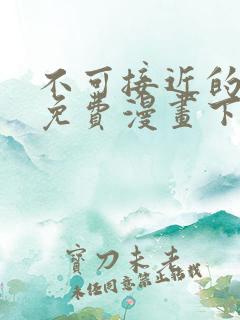 不可接近的
免費漫畫下
寶刀未老
未经同意禁止转载